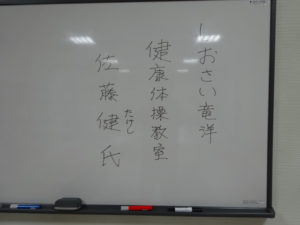 しおさい竜洋
健康体操教室
佐藤健氏
たけし